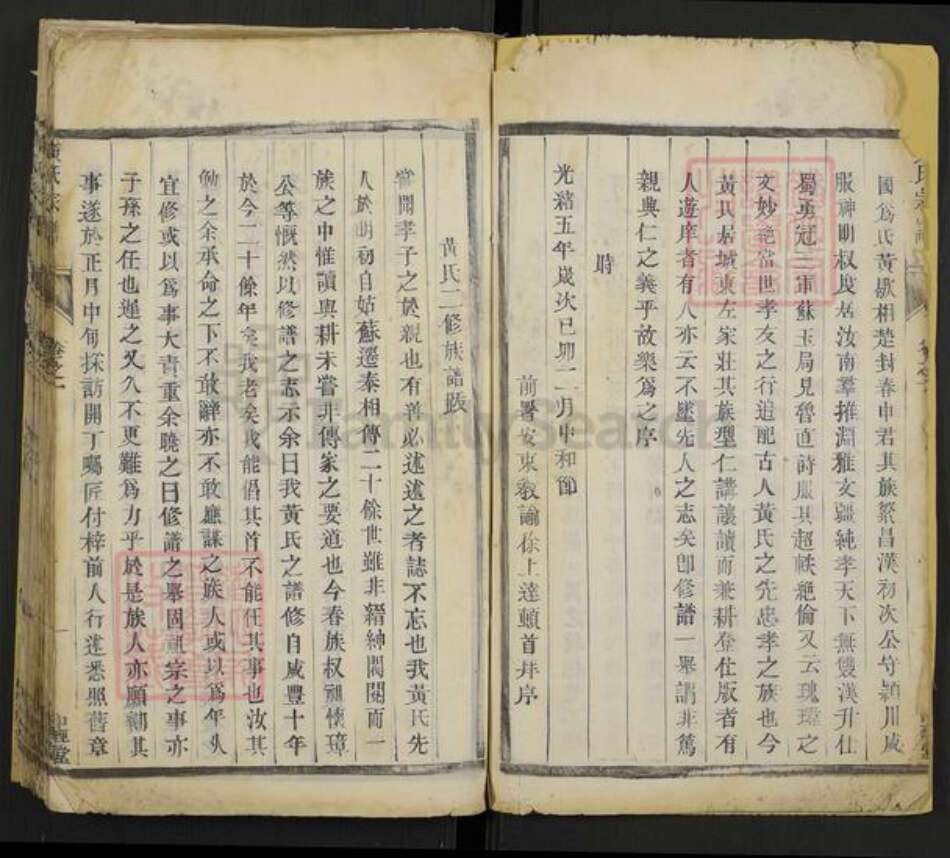 國爲氏黃歇相楚封春申君其族繁昌漢初次公守潁川咸
服神明叔度居汝南羣推淵雅文彊純孝天下無雙漢升仕
蜀勇冠三軍蘇玉局見魯直詩服其超軼絶倫又云瑰瑋之
文妙絶當世孝友之行追配古人黃氏之先忠孝之族也今
黃氏居城東左家莊其族型仁講讓讀而兼耕登仕版者有
人遊庠者有人亦云不墜先人之志矣卽修譜一舉謂非篤
親典仁之義乎故樂爲之序
時
光緒五年歲次已卯二月中和節
前署安東敎諭徐上達頓首拜序
黃氏二修族譜跋
嘗聞孝子之於親也有善必述述之者誌不忘也我黃氏先
人於明初自姑蘇遷秦相傳二十餘世雖非縉紳閥閱而一
族之中惟讀與耕未嘗非傳家之要道也今春族叔祖懷璋
公等慨然以修譜之志示余曰我黃氏之譜修自咸豐十年
於今二十餘年矣我老矣我能倡其首不能任其事也汝其
勉之余承命之下不敢辭亦不敢應謀之族人或以爲年久
宜修或以爲事大責重余曉之曰修譜之舉固祖宗之事亦
子孫之任也遲之又久不更難爲力乎於是族人亦願勷其
事遂於正月中旬採訪開丁囑匠付梓前人行述悉照舊章
卷之一
FamilySearch